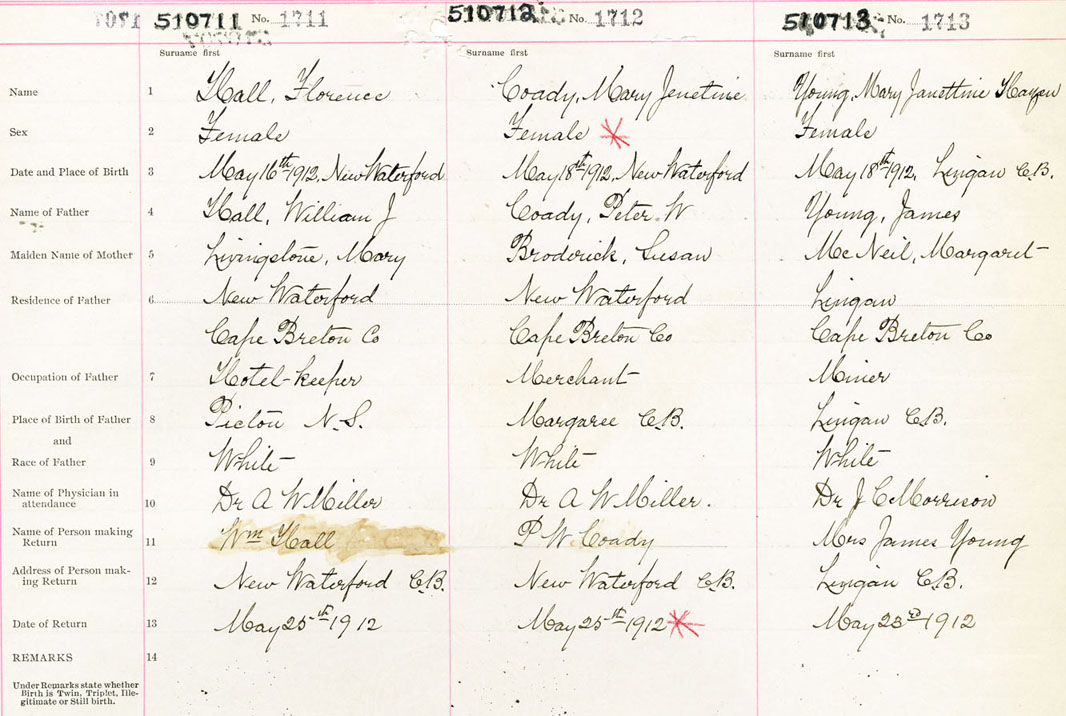 510711 No. 1711 510712 No. 1712 510713 No. 1713
Surname first Surname first Surname first
Name 1 Hall, Florence Coady, Mary Jenetine Young, Mary Janettine Hayzen
Sex 2 Female Female Female
Date and Place of Birth 3 May 16th 1912, New Waterford May 18th 1912, New Waterford May 18th 1912, Lingan C.B.
Name of Father 4 Hall, William J Coady, Peter W Young, James
Maiden Name of Mother 5 Livingstone, Mary Broderick, Susan McNeil, Margaret
Residence of Father 6 New Waterford New Waterford Lingan
Cape Breton Co Cape Breton Co Cape Breton Co
Occupation of Father 7 Hotel-keeper Merchant Miner
Place of Birth of Father 8 Pictou N.S. Margaree C.B. Lingan C.B.
and
Race of Father 9 White White White
Name of Physician in
attendance 10 Dr A W Miller Dr A W Miller. Dr J C Morrison
Name of Person making
Return 11 Wm Hall P W Coady Mrs James Young
Address of Person mak-
ing Return 12 New Waterford C.B. New Waterford C.B. Lingan C.B.
Date of Return 13 May 25th 1912 May 25th 1912 May 23rd 1912
REMARKS 14
Under Remarks state whether
Birth is Twin, Triplet, Ille-
gitimate or Still birth.